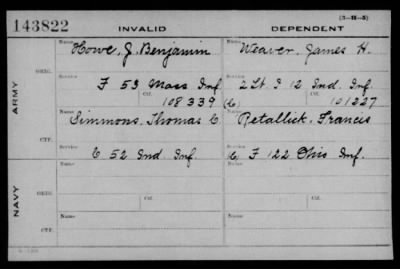 (3-H-5)
143822 INVALID DEPENDENT
Name Howe, J. Benjamin Name Weaver, James H.
ORIG.
Service F 53 Mass Inf. Service 2 Lt. I 12 Ind. Inf.
Ctf. 108339 Ctf. (C) 101227
ARMY
Name Simmons, Thomas C. Name Retallick, Francis
CTF.
Service C 52 Ind Inf. Service (C) F 122 Ohio Inf.
Name Name
ORIG.
Service Ctf. Service Ctf.
NAVY
Name Name
CTF.
Service Service